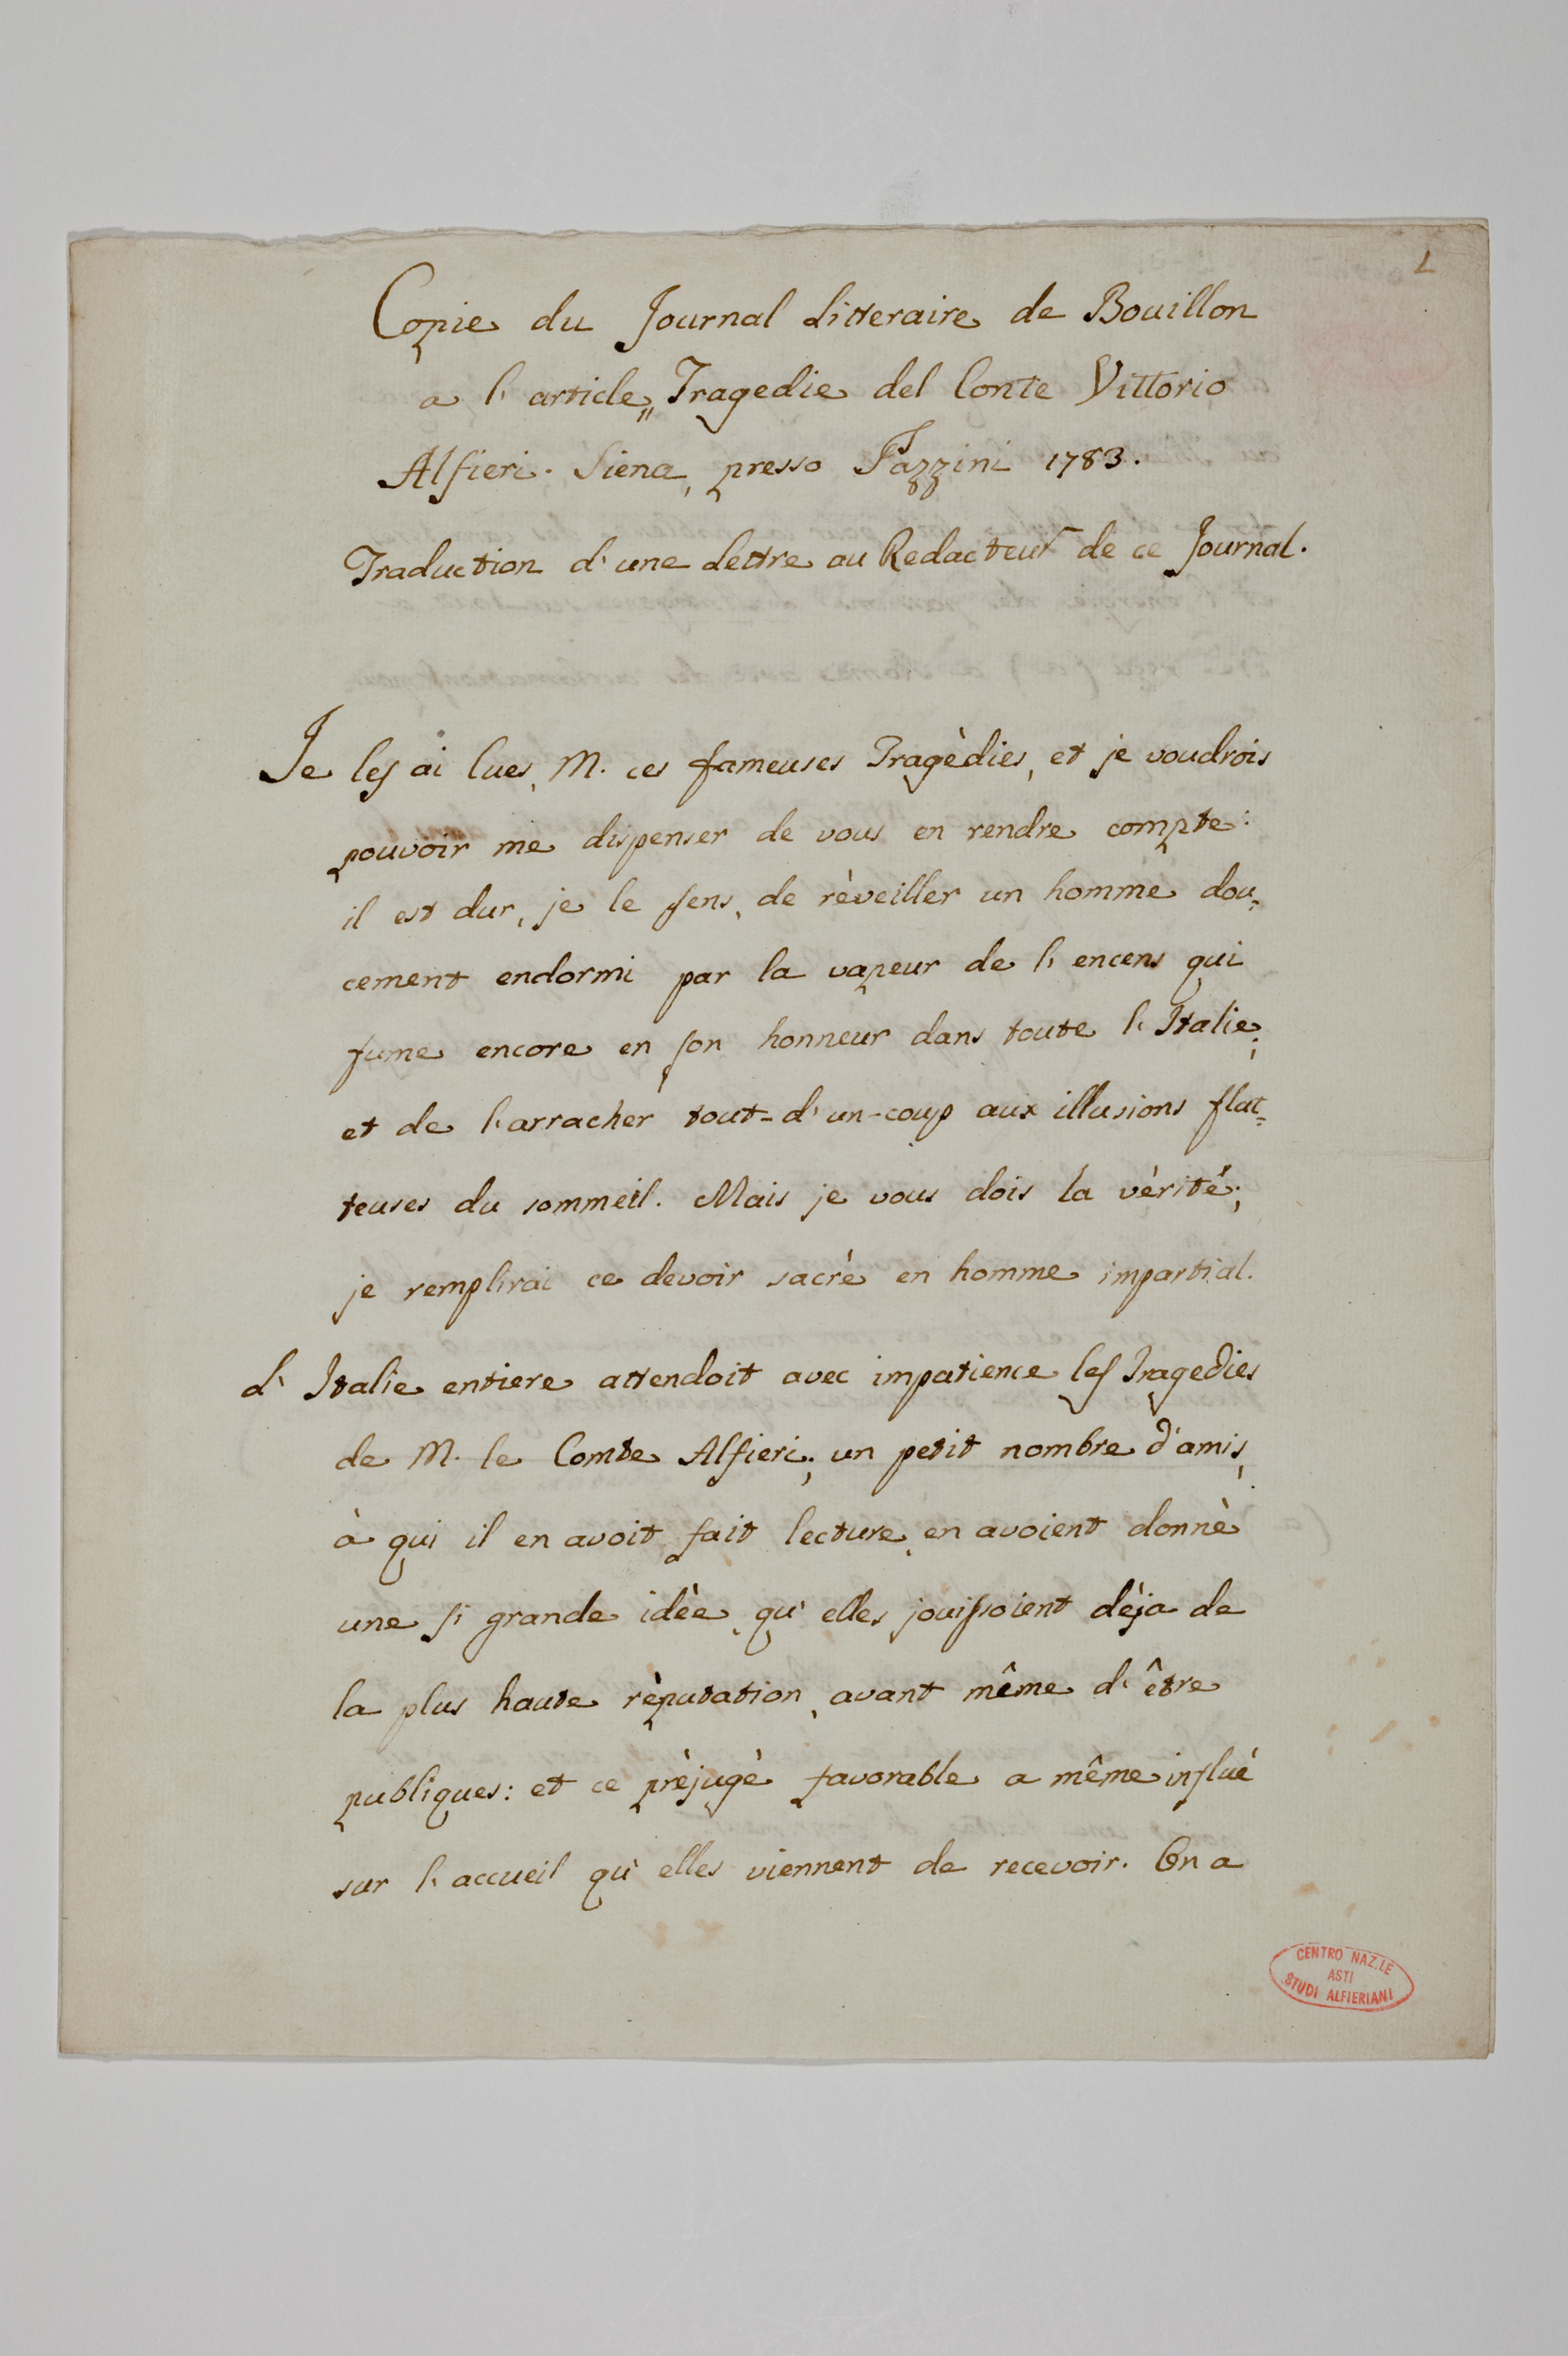 1
Copie du Journal Litteraire de Bouillon
a l'article „ Tragedie del Conte Vittorio
Alfieri. Siena, presso Pazzini 1783.
Traduction d'une Lettre au Redacteur de ce Journal.
Je les ai lues, M. ces fameuses Tragèdies, et je voudrois
pouvoir me dispenser de vous en rendre compte:
il est dur, je le sens, de rèveiller un homme dou=
cement endormi par la vapeur de l'encens qui
fume encore en son honneur dans toute l'Italie;
et de l'arracher tout-d'un-coup aux illusions flat=
teuses du sommeil. Mais je vous dois la vèrité;
je remplirai ce devoir sacrè en homme impartial.
L'Italie entiere attendoit avec impatience les Tragedies
de M. le Comte Alfieri; un petit nombre d'amis,
à qui il en avoit fait lecture, en avoient donnè
une si grande idèe, qu'elles jouissoient dèja de
la plus haute rèputation, avant même d'être
publiques: et ce prèjugè favorable a même influè
sur l'accueil qu'elles viennent de recevoir. On a
CENTRO NAZ.LE
ASTI
STUDI ALFIERIANI